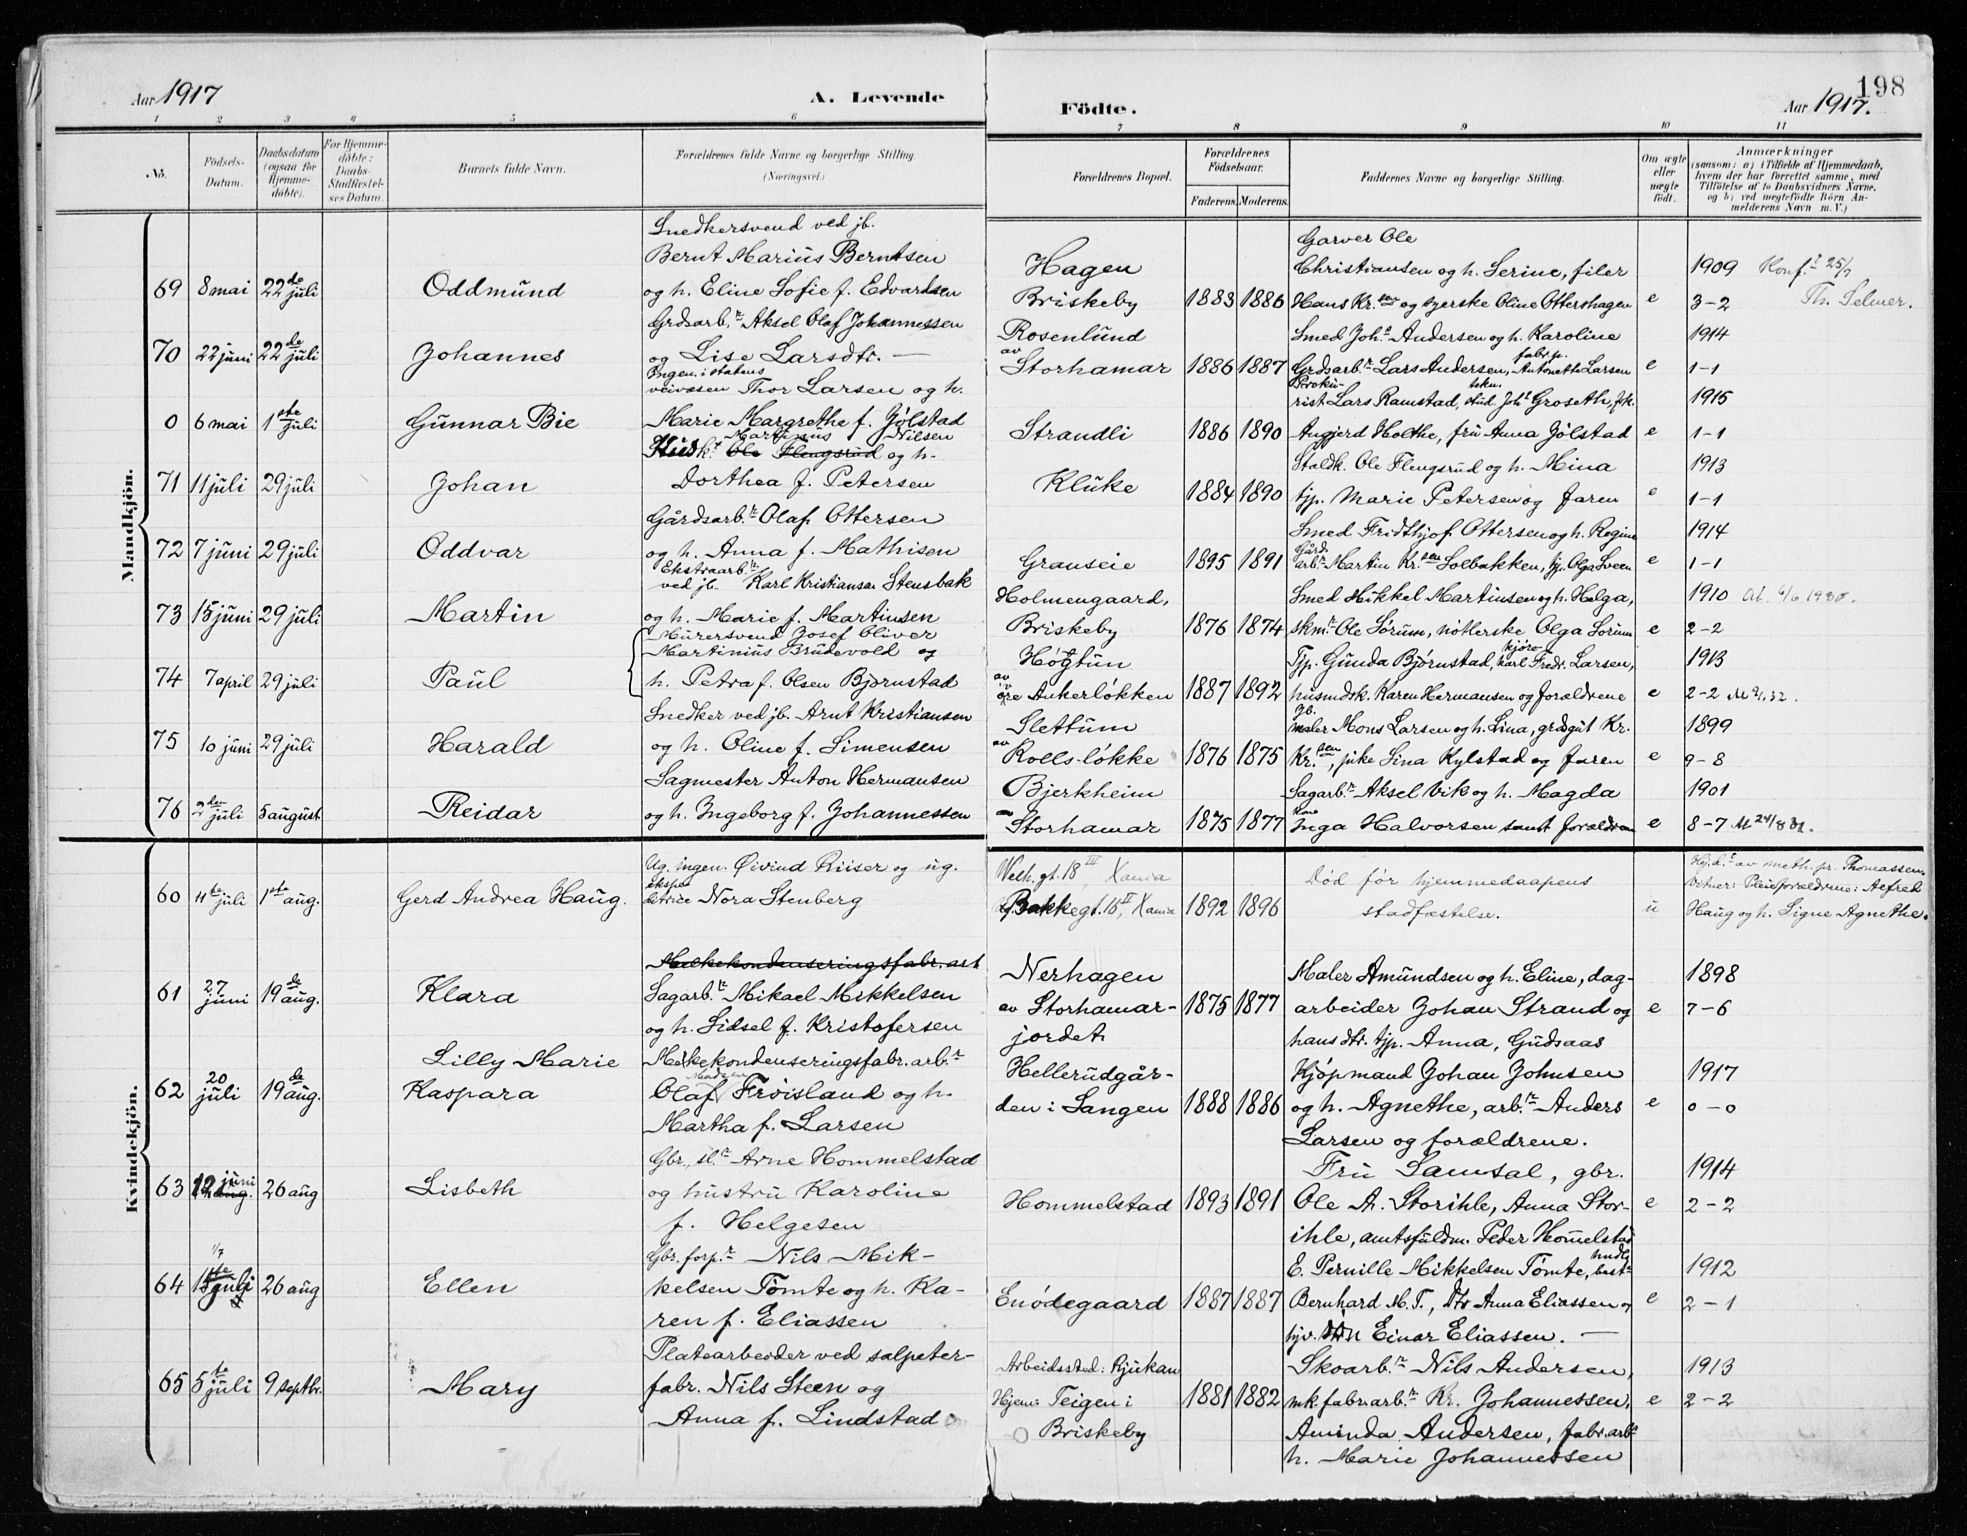 Aar 1917
A. Levende
Födte.
Aar 1917.
198
1 2 3 4 5 6 7 8 9 10 11
No.
Födsels-
Datum.
Daabsdatum
(ogsaa for
Hjemme-
döbte).
For Hjemme-
döbte:
Daabs-
Stadfæstel-
ses Datum.
Barnets fulde Navn.
Forældrenes fulde Navne og borgerlige Stilling.
(Næringsvei.)
Forældrenes Bopæl.
Forældrenes
Födselsaar.
Faderens. Moderens.
Faddernes Navne og borgerlige Stilling.
Om ægte
eller
uægte
födt.
Anmærkninger
(saasom: a) i Tilfælde af Hjemmedaab,
hvem der har forrettet samme, med
Tilföielse af to Daabsvidners Navne,
og b) ved uegtefödte Börn An-
melderens Navn m. V.)
Mandkjön.
69 8 mai 22de juli Oddmund
Snedkersvend ved jb.
Bernt Marius Berntsen
og h. Eline Sofie f. Edvardsen
Hagen
Briskeby
1883 1886
Garver Ole
Christiansen og h. Serine, filer
Hans Kr.sen og syerske Oline Ottershagen
e
1909 Konf. 25/7
3-2 Th. Selmer.
70 22 juni 22de juli Johannes
Grdsarb.r Aksel Olaf Johannessen
og Lise Larsdtr. —
Rosenlund
av
Storhamar
1886 1887
Smed Joh.s Andersen og h. Karoline
Grdsarb.r Lars Andersen, fabr.p. Antonette Larsen
e
1914
1-1
0 6 mai 1ste juli Gunnar Bie
Ingen. i statens
veivæsen Thor Larsen og h.
Marie Margrethe f. Jølstad
Strandli
1886 1890
Prokur-
rist Lars Ramstad, stud. tekn. Joh.s Groseth, frk.
Angjerd Holthe, fru Anna Jølstad
e
1915
1-1
71 11 juli 29 juli Johan
Martinus Nilsen
Husk. Ole Flengsrud og h.
Dorthea f. Petersen
Kluke
1884 1890
Staldk. Ole Flengsrud og h. Mina
tjp. Marie Petersen og faren
e
1913
1-1
72 7 juni 29 juli Oddvar
Gårdsarb.r Olaf Ottersen
og h. Anna f. Mathisen
Granseie
1895 1891
Smed Fridthjof Ottersen og h. Regine
Gårds
arb.r Martin Kr.sen Solbakken, tj. Olga Sveen
e
1914
1-1
73 15 juni 29 juli Martin
Ekstraarb.r
ved jb. Karl Kristiansen Stensbak
og h. Marie f. Martinsen
Holmengaard,
Briskeby
1876 1874
Smed Mikkel Martinsen og h. Helga,
skm.r Ole Sørum, Olga Sørum
e
1910
2-2
74 7 april 29 juli Paul
Murersvend Josef Oliver
Martinius Brudevold og
h. Petra f. Olsen Bjørnstad
Høgtun
av
øre Ankerløkken
1887 1892
Tjp. Gunda Bjørnstad, kjøre Karl Fredr. Larsen,
husmdsk. Karen Hermansen og forældrene
e
1913
2-2
75 10 juni 29 juli Harald
Snedker ved jb. Arnt Kristiansen
og h. Oline f. Simensen
Slettum
av
Rolls-løkke
1876 1875
Jb.
maler Mons Larsen og h. Lina, grdsgut Kr.
Kr.sen, pike Lina Kylstad og faren
e
1899
9-8
76 2den juli 5 august Reidar
Sagmester Anton Hermansen
og h. Ingeborg f. Johannessen
Bjerkheim
av
Storhamar
1875 1877
Sagarb.r Aksel Vik og h. Magda
Kone
Inga Halvorsen samt forældrene
e
1901
8-7 M 24/8 31.
Kvindekjön.
60 11te juli 1ste aug. Gerd Andrea Haug.
Ug. ingen. Øivind Riiser og ug.
ekspe
ditrice Nora Stenberg
Welh. gt. 18 III, Xania
Bakkegt. 16 II, Xania
1892 1896
Død før hjemmedaapens
stadfæstelse.
u
Hj.d. av meth. pr. Thomassen.
Vitner: Pleieforældrene: Alfred
Haug og h. Signe Agnethe.
61 27 juni 19de aug. Klara
Melkekondenseringsfabr. arb
Sagarb.r Mikael Mikkelsen
og h. Sidsel f. Kristofersen
Nerhagen
av Storhamar-
jordet
1875 1877
Maler Amundsen og h. Eline, dag-
arbeider Johan Strand og
hans dtr. tjp. Anna, Gudsaas
e
1898
7-6
62 20 juli 19de aug. Lilly Marie
Kaspara
Melkekondenseringsfabr. arb.r
Olaf Frøisland og h.
Martha f. Larsen
Hellerudgår-
den i Vangen
1888 1886
Kjøpmand Johan Johnsen
og h. Agnethe, arb.r Anders
Larsen og forældrene.
e
1917
0-0
63 12 juni aug. 26 aug Lisbeth
Gbr. sl.r Arne Hommelstad
og hustru Karoline
f. Helgesen
Hommelstad
1893 1891
Fru Samsal, gbr.
Ole A. Storihle, Anna Stor-
ihle, amtsfuldm. Peder Hommelstad
e
1914
2-2
64 1/7 juli 26 aug Ellen
Gbr. forp.r Nils Mik-
kelsen Tømte og h. Ka-
ren f. Eliassen
Enødegaard
1887 1887
E. Pernille Mikkelsen Tømte,
Bernhard M. T., Anna Eliassen og
Einar Eliassen. —
e
1912
2-1
65 5te juli 9 septbr. Mary
Platearbeider ved salpeter-
fabr. Nils Steen og
Anna f. Lindstad
Arbeidssted: Rjukan
Hjem: Teigen i
Briskeby
1881 1882
Skoarb.r Nils Andersen,
mk. fabr.arb.r Kr. Johannessen,
Aminda Andersen, fabr.arb.
h. Marie Johannessen
e
1913
2-2